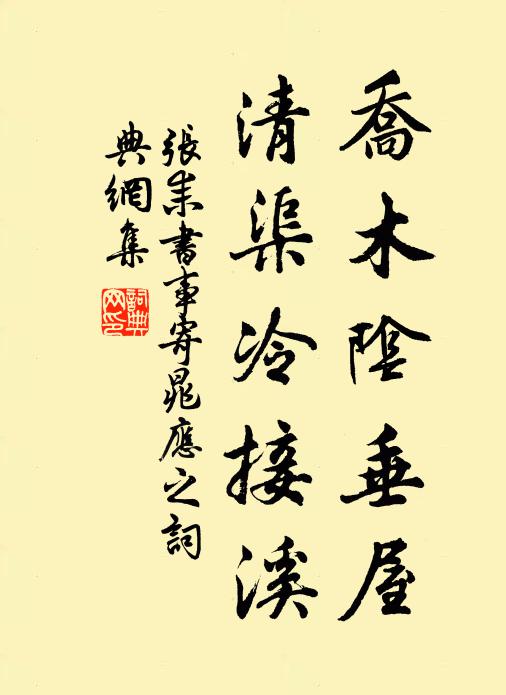 喬木陰垂屋
清渠冷接溪
張耒書事寄晁應之詞
典網集
詞典網印